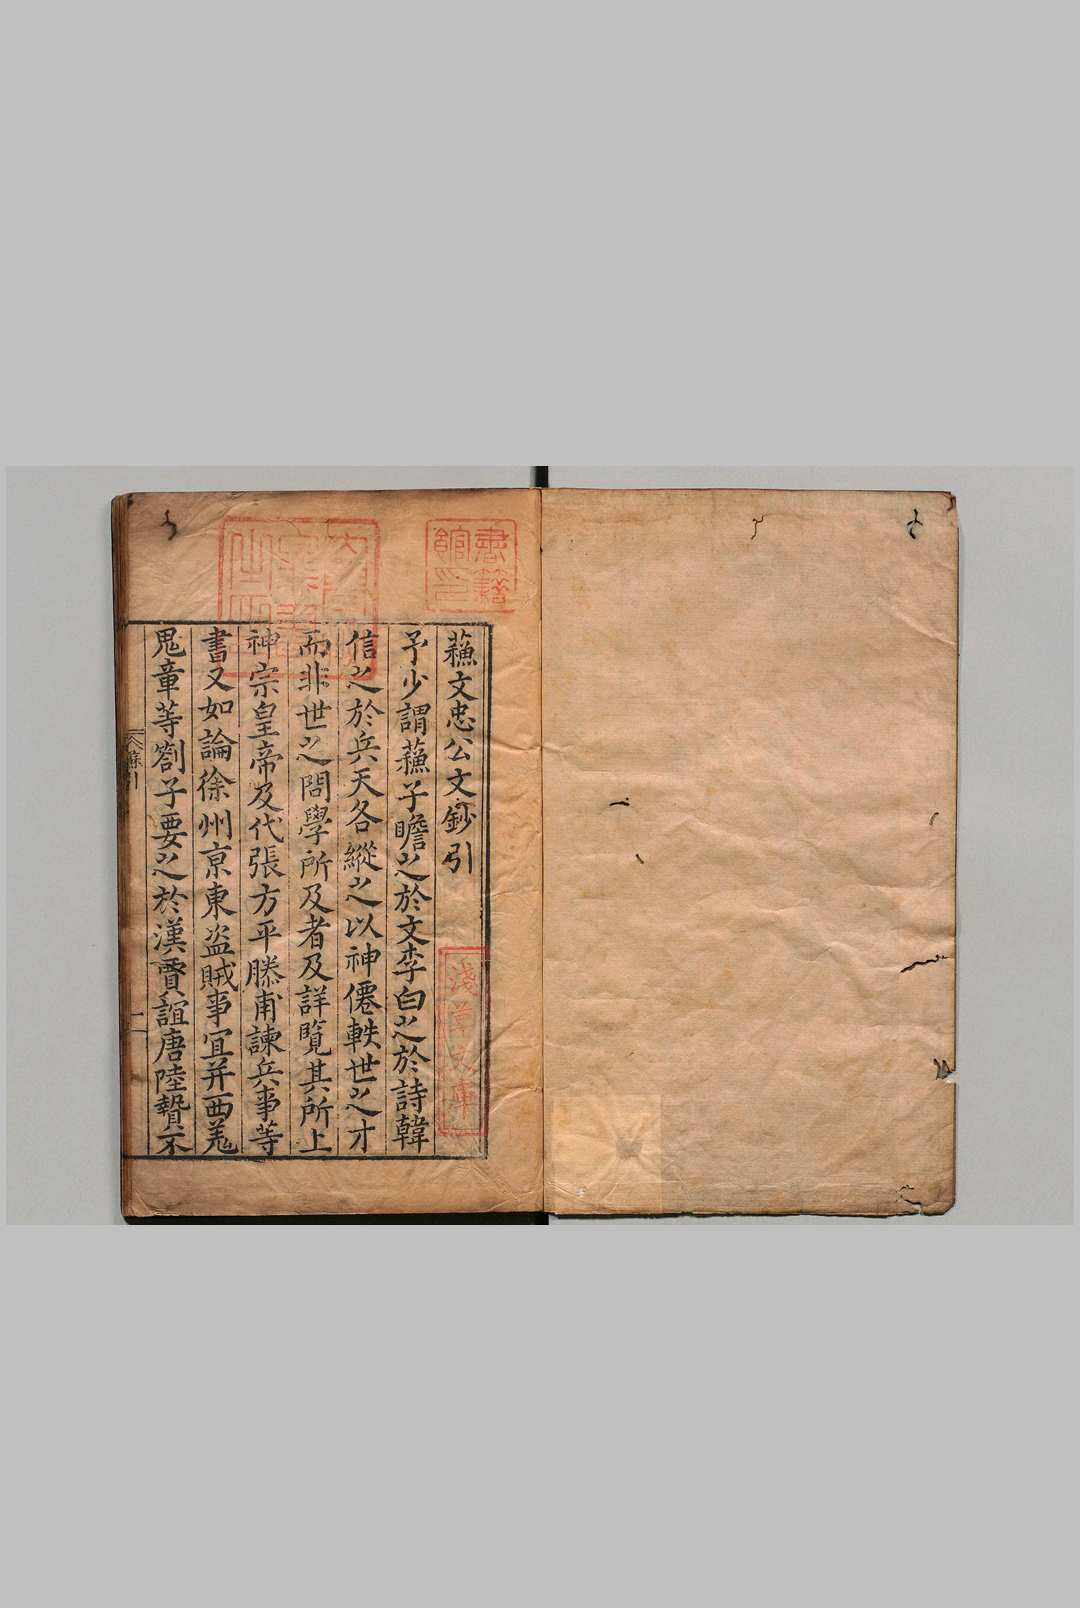 蘓文忠公文鈔引
予少謂蘓子瞻之於文李白之於詩韓
信之於兵天各縱之以神僊軼世之才
而非世之問學所及者及詳覽其所上
神宗皇帝及代張方平滕甫諫兵事等
書又如論徐州京東盗賊事宜并西羌
鬼章等劄子要之於漢賈誼唐陸贄不
蘇引
一
書籍
館印
淺草文庫